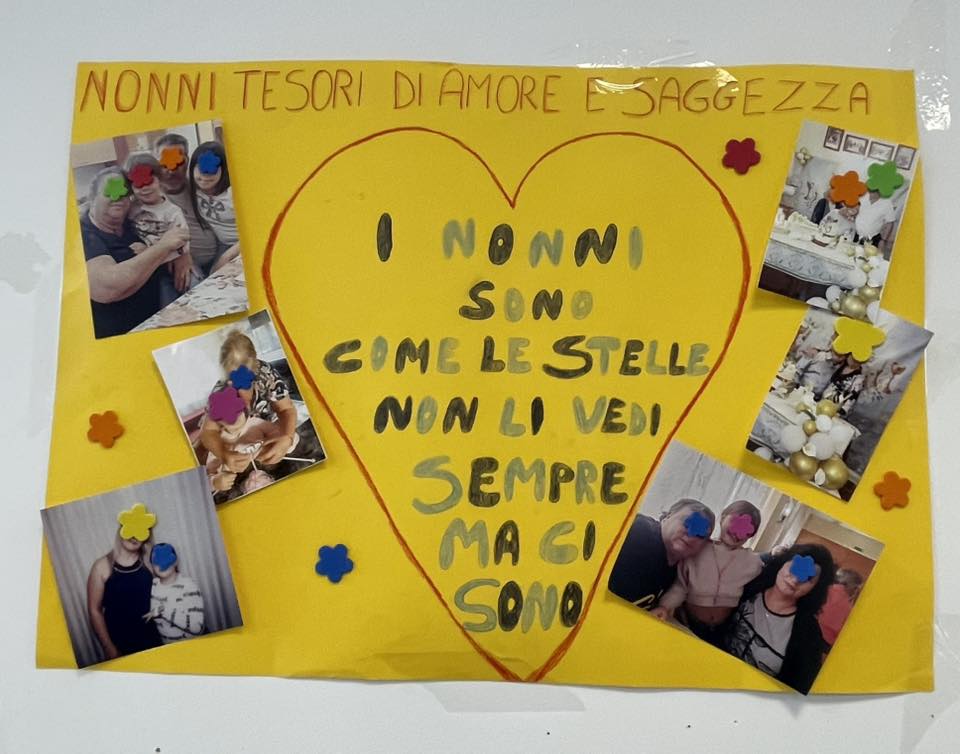 NONNI TESORI DI AMORE E SAGGEZZA
I NONNI
SONO
COME LE STELLE
NON LI VEDI
SEMPRE
MA CI
SONO